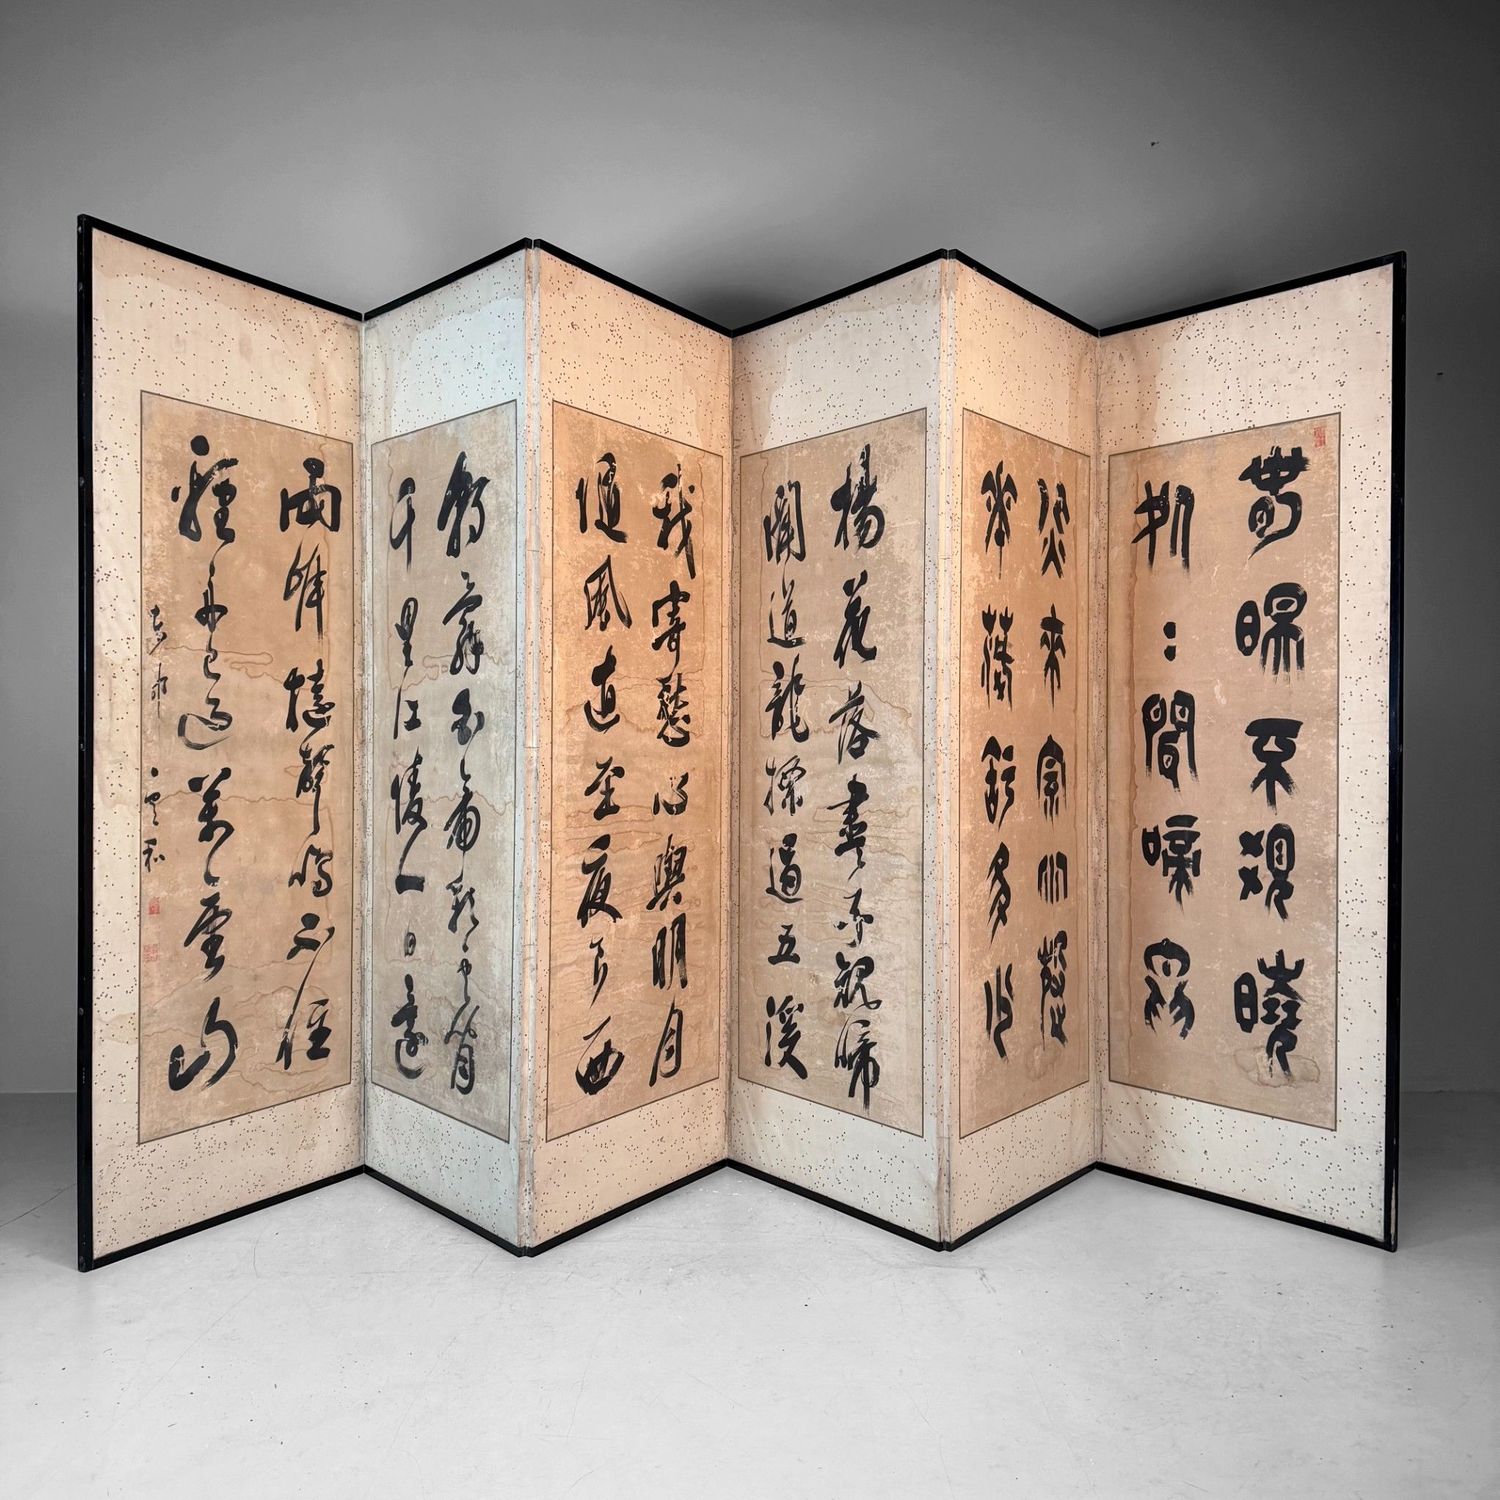 春眠不覺曉
處〻聞啼鳥
夜来風雨聲
花落知多少
楊花落盡子規啼
聞道龍標過五溪
我寄愁心與明月
隨風直至夜郎西
朝辭白帝彩雲間
千里江陵一日還
兩岸猿聲啼不住
輕舟已過萬重山